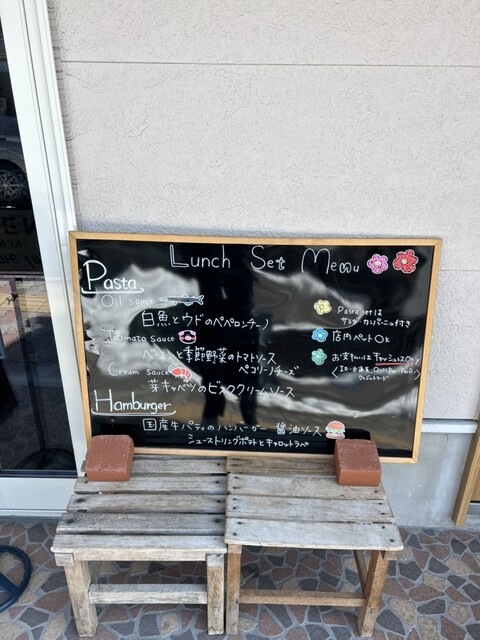 Lunch Set Menu
Pasta
Oil sauce
白魚とウドのペペロンチーノ
Tomato sauce
ベーコンと季節野菜のトマトソース
ペコリーノチーズ
Cream sauce
芽キャベツのビスククリームソース
Hamburger
国産牛パティのハンバーガー 醤油ソース
シューストリングポテトとキャロットラペ
Pasta setは
サラダ・カンパーニュ付き
店内ペットOK
お支払いはキャッシュレスOnly
クレジットカード